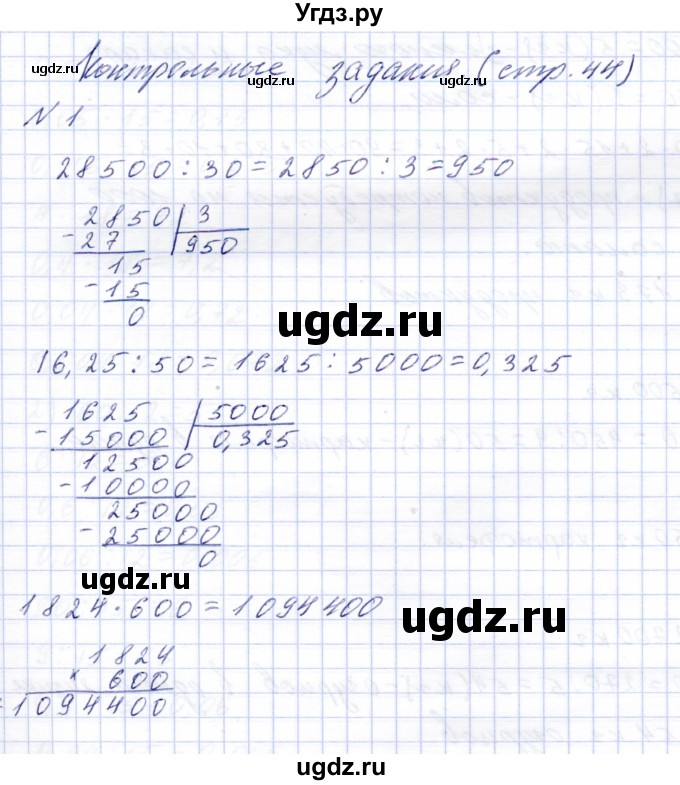 Угдз.ру
Контрольные задания (стр. 44)
ugdz.ru ugdz.ru ugdz.ru
N 1
28500 : 30 = 2850 : 3 = 950
2850 | 3
ugdz.ru
- 27 | 950
15
- 15
0
ugdz.ru
16,25 : 50 = 1625 : 5000 = 0,325
1625 | 5000
- 15000 | 0,325
12500
- 10000
25000
- 25000
0
ugdz.ru
ugdz.ru
1824 · 600 = 1094400
1824
× 600
= 1094400
ugdz.ru